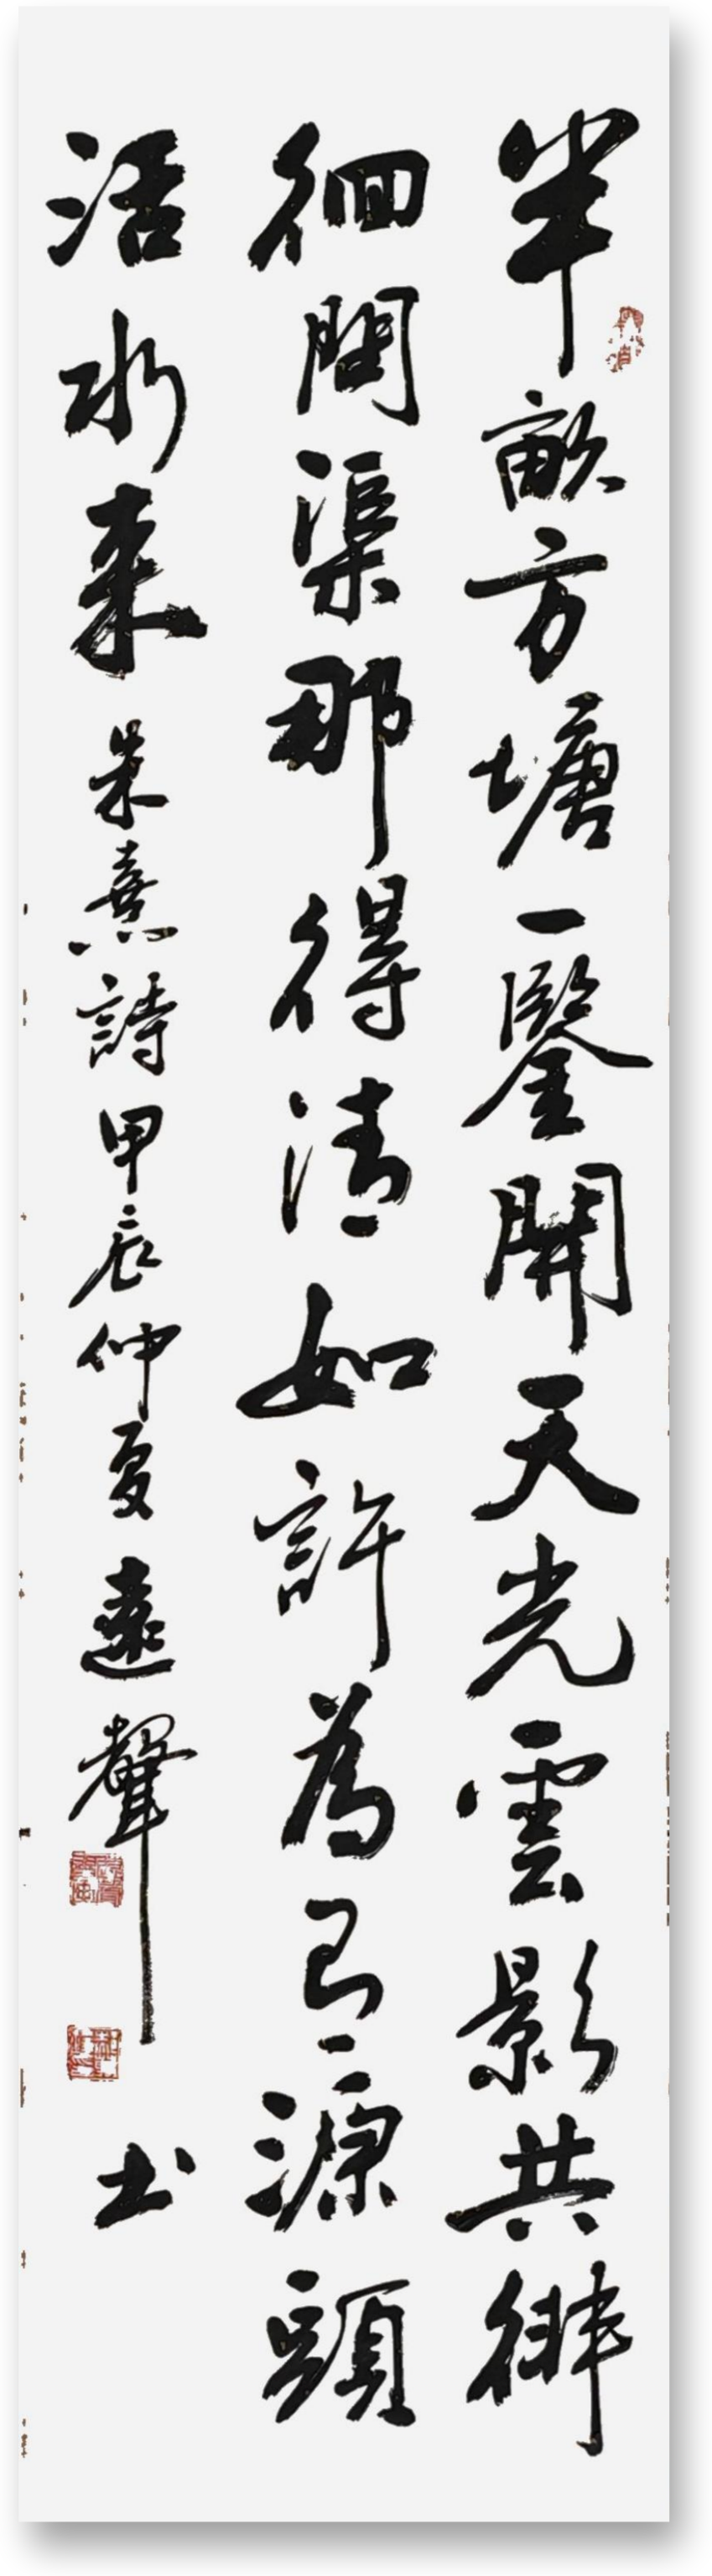 半畝方塘一鑒開天光雲影共徘
徊問渠那得清如許為有源頭
活水来朱熹詩甲辰仲夏遠聲書